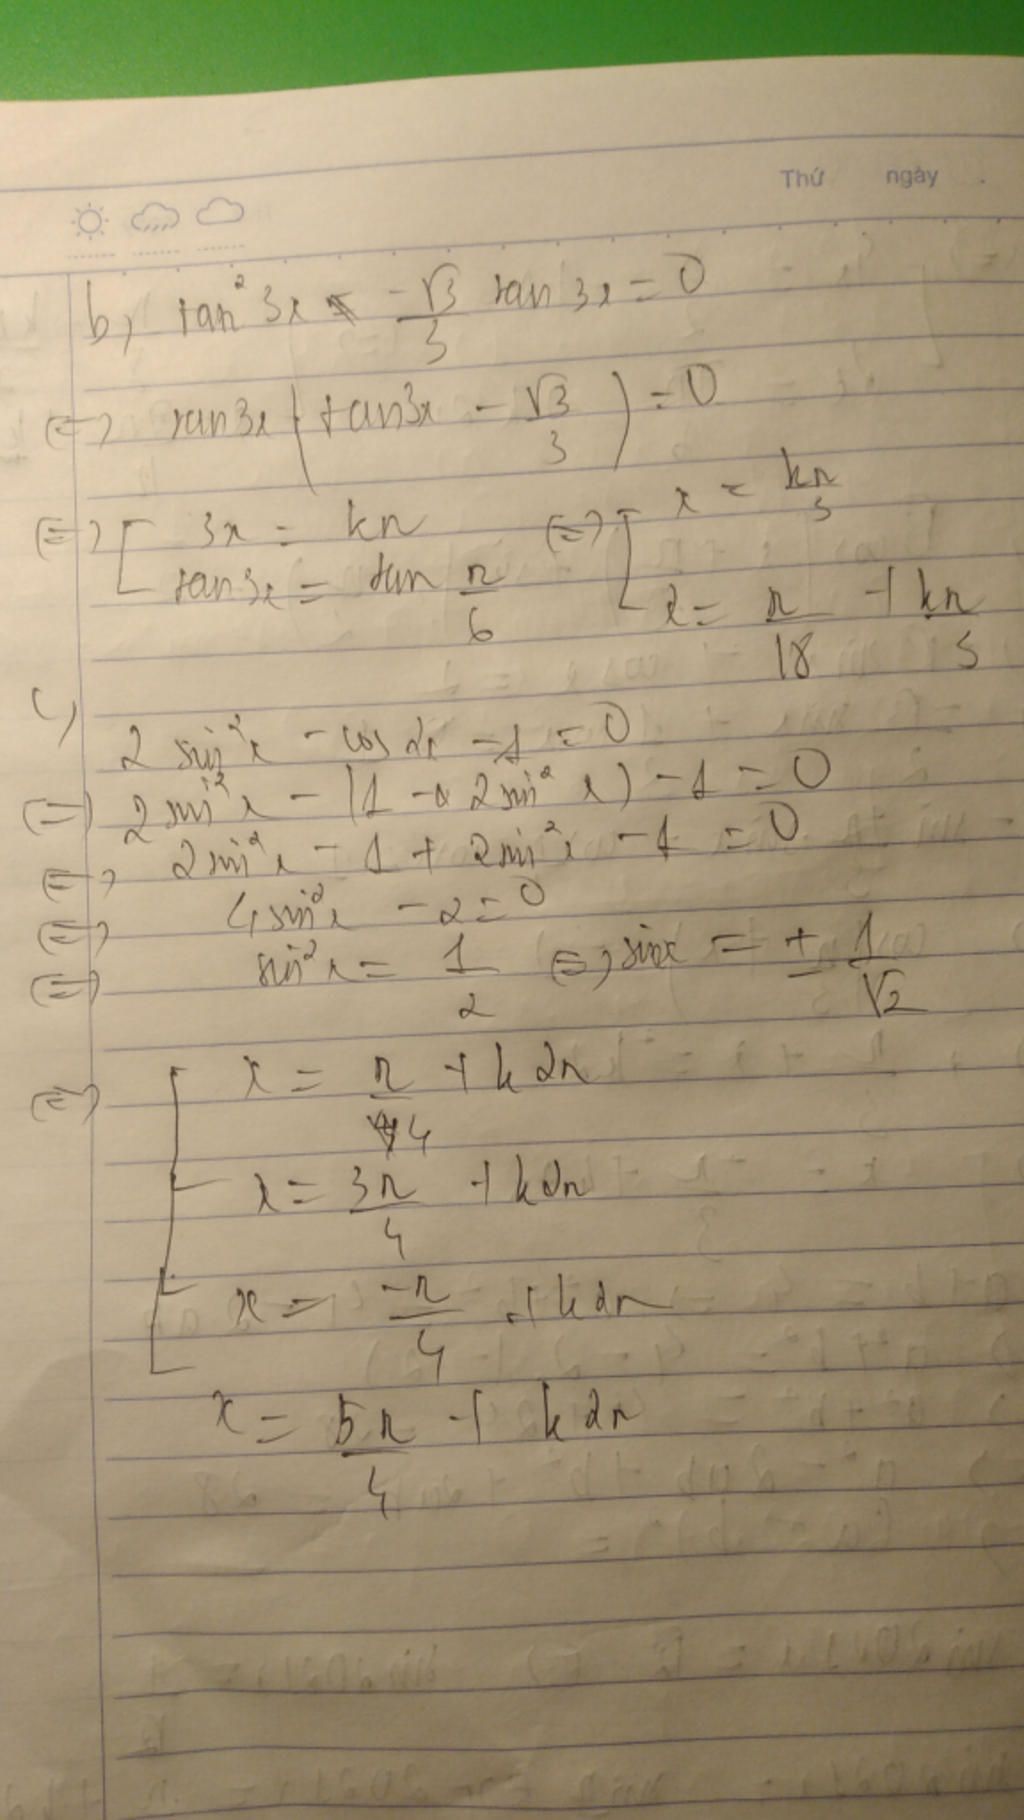 Thứ ngày .
b, tan² 3x -√3/3 tan 3x = 0
(=) tan3x (tan3x - √3/3) = 0
(=) [ 3x = kπ (=) [ x = kπ/3
tan3x = tan π/6 x = π/18 + kπ/3
c,
2 sin²x - cos 2x - 1 = 0
(=) 2 sin²x - (1 - 2 sin² x) - 1 = 0
(=) 2 sin²x - 1 + 2 sin²x - 1 = 0
(=) 4 sin²x - 2 = 0
(=) sin²x = 1/2 (=) sinx = ± 1/√2
(=) [ x = π/4 + k2π
x = 3π/4 + k2π
x = -π/4 + k2π
x = 5π/4 + k2π